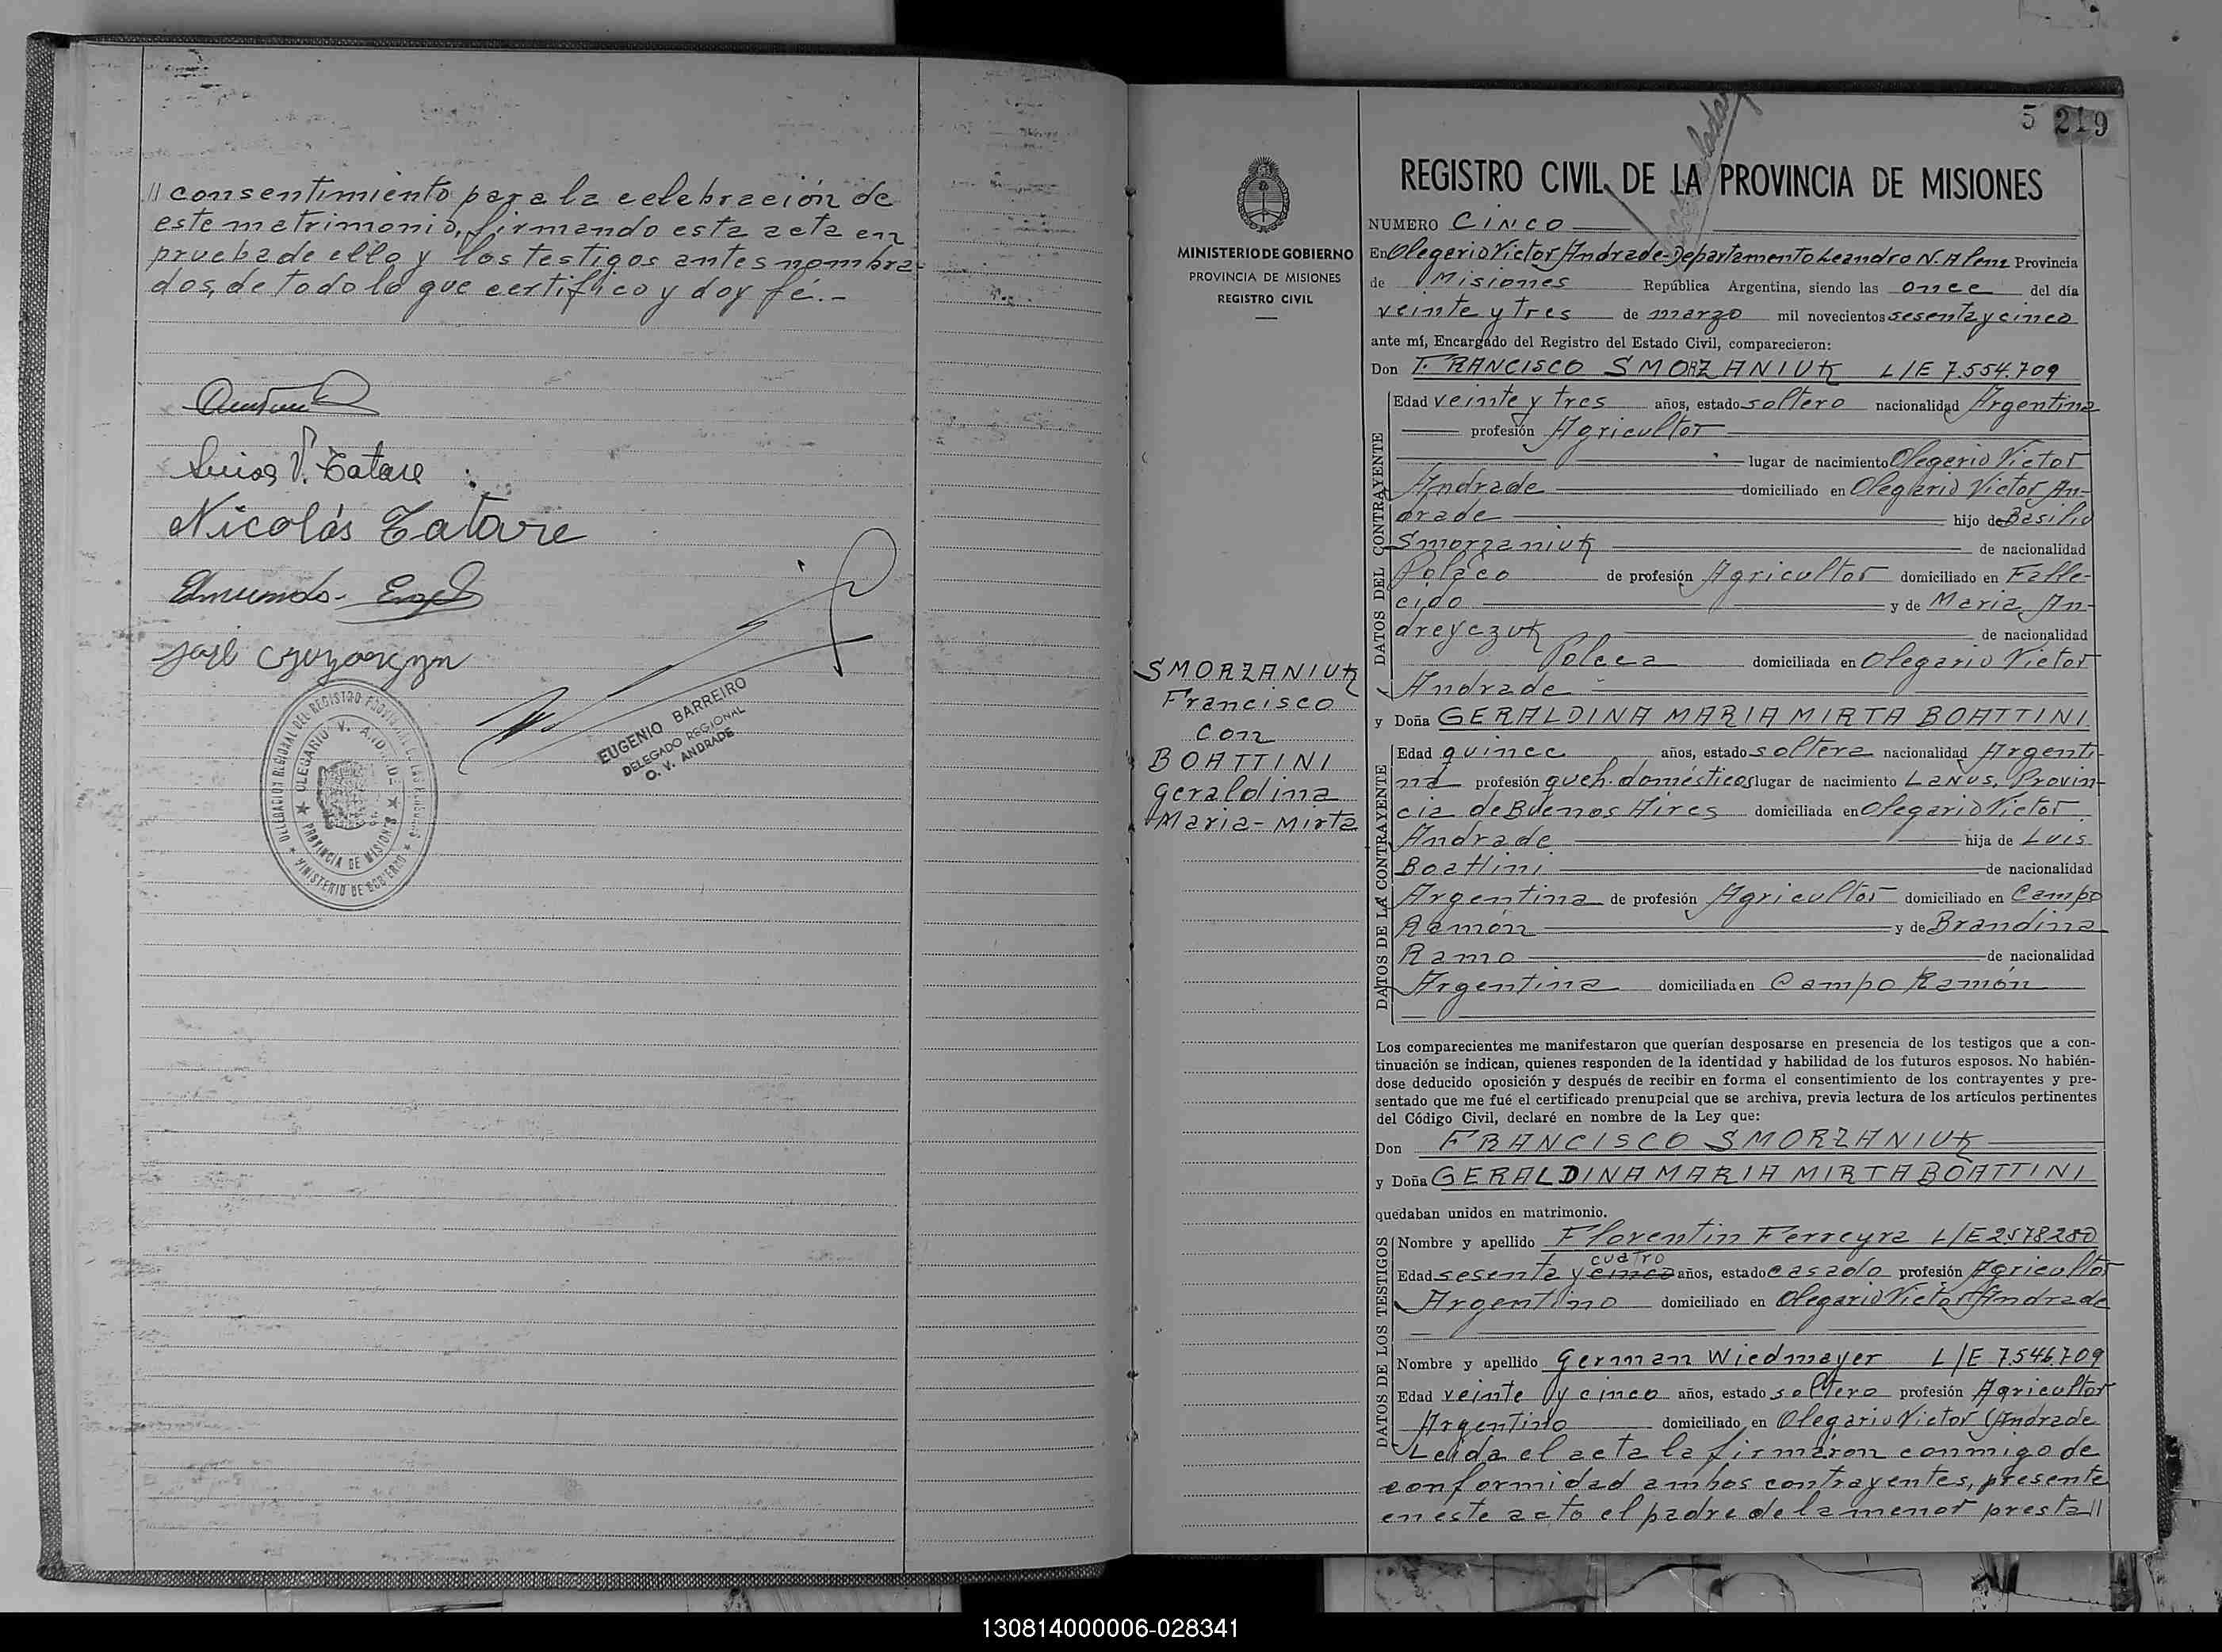 // consentimiento para la celebración de
este matrimonio, firmando esta acta en
prueba de ello y los testigos antes nombra-
dos, de todo lo que certifico y doy fé.-
Luisa V. Tatare
Nicolás Tatare
Edmundo Engel
José
DELEGACION REGIONAL DEL REGISTRO PROVINCIAL DE LAS PERSONAS
OLEGARIO V. ANDRADE
PROVINCIA DE MISIONES
MINISTERIO DE GOBIERNO
EUGENIO BARREIRO
DELEGADO REGIONAL
O. V. ANDRADE
5 219
MINISTERIO DE GOBIERNO
PROVINCIA DE MISIONES
REGISTRO CIVIL
SMORZANIUK
Francisco
con
BOATTINI
Geraldina
Maria-Mirta
REGISTRO CIVIL DE LA PROVINCIA DE MISIONES
NUMERO CINCO
En Olegario Victor Andrade-Departamento Leandro N. Alem Provincia
de Misiones República Argentina, siendo las once del día
veinte y tres de marzo mil novecientos sesenta y cinco
ante mí, Encargado del Registro del Estado Civil, comparecieron:
Don FRANCISCO SMORZANIUK L/E 7.554.709
DATOS DEL CONTRAYENTE
Edad veinte y tres años, estado soltero nacionalidad Argentina
profesión Agricultor
lugar de nacimiento Olegario Victor
Andrade domiciliado en Olegario Victor An-
drade hijo de Basilio
Smorzaniuk de nacionalidad
Polaco de profesión Agricultor domiciliado en Falle-
cido y de Maria An-
dreyczuk de nacionalidad
Polaca domiciliada en Olegario Victor
Andrade
y Doña GERALDINA MARIA MIRTA BOATTINI
DATOS DE LA CONTRAYENTE
Edad quince años, estado soltera nacionalidad Argenti-
na profesión queh. domésticos lugar de nacimiento Lanus, Provin-
cia de Buenos Aires domiciliada en Olegario Victor
Andrade hija de Luis
Boattini de nacionalidad
Argentina de profesión Agricultor domiciliado en Campo
Ramón y de Brandina
Ramo de nacionalidad
Argentina domiciliada en Campo Ramón
Los comparecientes me manifestaron que querían desposarse en presencia de los testigos que a con-
tinuación se indican, quienes responden de la identidad y habilidad de los futuros esposos. No habién-
dose deducido oposición y después de recibir en forma el consentimiento de los contrayentes y pre-
sentado que me fué el certificado prenupcial que se archiva, previa lectura de los artículos pertinentes
del Código Civil, declaré en nombre de la Ley que:
Don FRANCISCO SMORZANIUK
y Doña GERALDINA MARIA MIRTA BOATTINI
quedaban unidos en matrimonio.
DATOS DE LOS TESTIGOS
Nombre y apellido Florentin Ferreyra L/E 2578280
cuatro
Edad sesenta y cinco años, estado casado profesión Agricultor
Argentino domiciliado en Olegario Victor Andrade
Nombre y apellido German Wiedmayer L/E 7.546.709
Edad veinte y cinco años, estado soltero profesión Agricultor
Argentino domiciliado en Olegario Victor Andrade
Leida el acta la firmaron conmigo de
conformidad ambos contrayentes, presente
en este acto el padre de la menor presta//
130814000006-028341